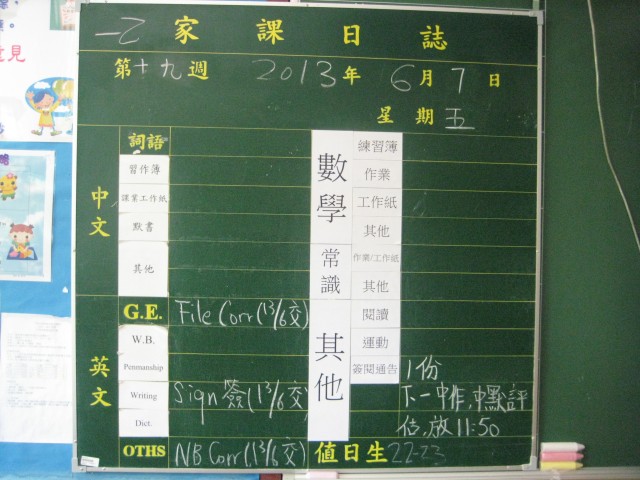 一乙 家課日誌
第十九週 2013年 6月 7日
星期五
中文
詞語
習作簿
課業工作紙
默書
其他
英文
G.E. File Corr(13/6交)
W.B.
Penmanship
Writing Sign 簽(13/6交)
Dict.
OTHS NB Corr(13/6交)
數學
練習簿
作業
工作紙
其他
常識
作業/工作紙
其他
其他
閱讀
運動
簽閱通告 1份
下一中作,中默評
估,放11:50
值日生 22-23
見